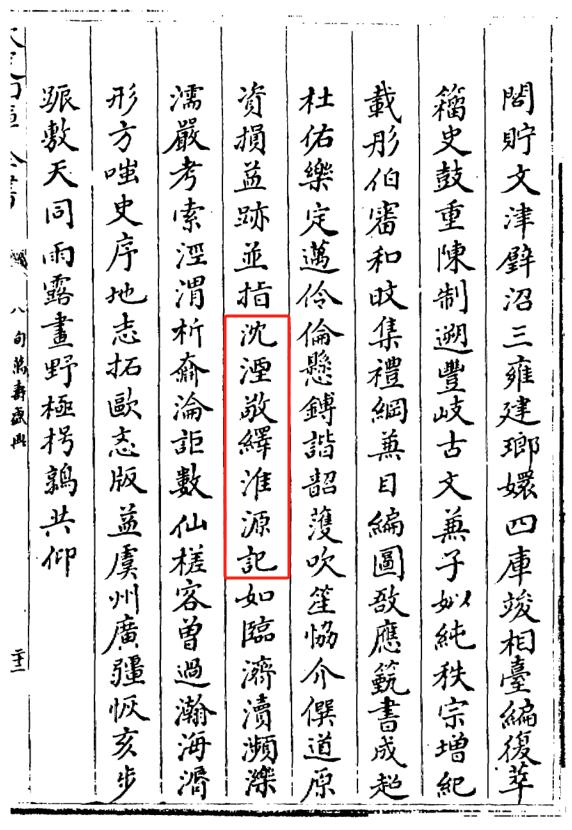 閣貯文津璧沼三雍建瑯嬛四庫竣相臺編復萃
籀史鼓重陳制遡豐岐古文兼子姒純秩宗增紀
載彤伯審和旼集禮綱兼目編圖敔應簨書成超
杜佑樂定邁伶倫懸鎛諧韶頀吹笙恊介僎道原
資損益跡並指沈湮敬繹淮源記如臨濟瀆瀕濼
濡嚴考索涇渭析淪詎數仙槎容曾過瀚海漘
形方嗤史序地志拓歐志版益虞州廣疆恢亥步
敷天同雨露畫野極枵鶉共仰
八旬萬壽盛典